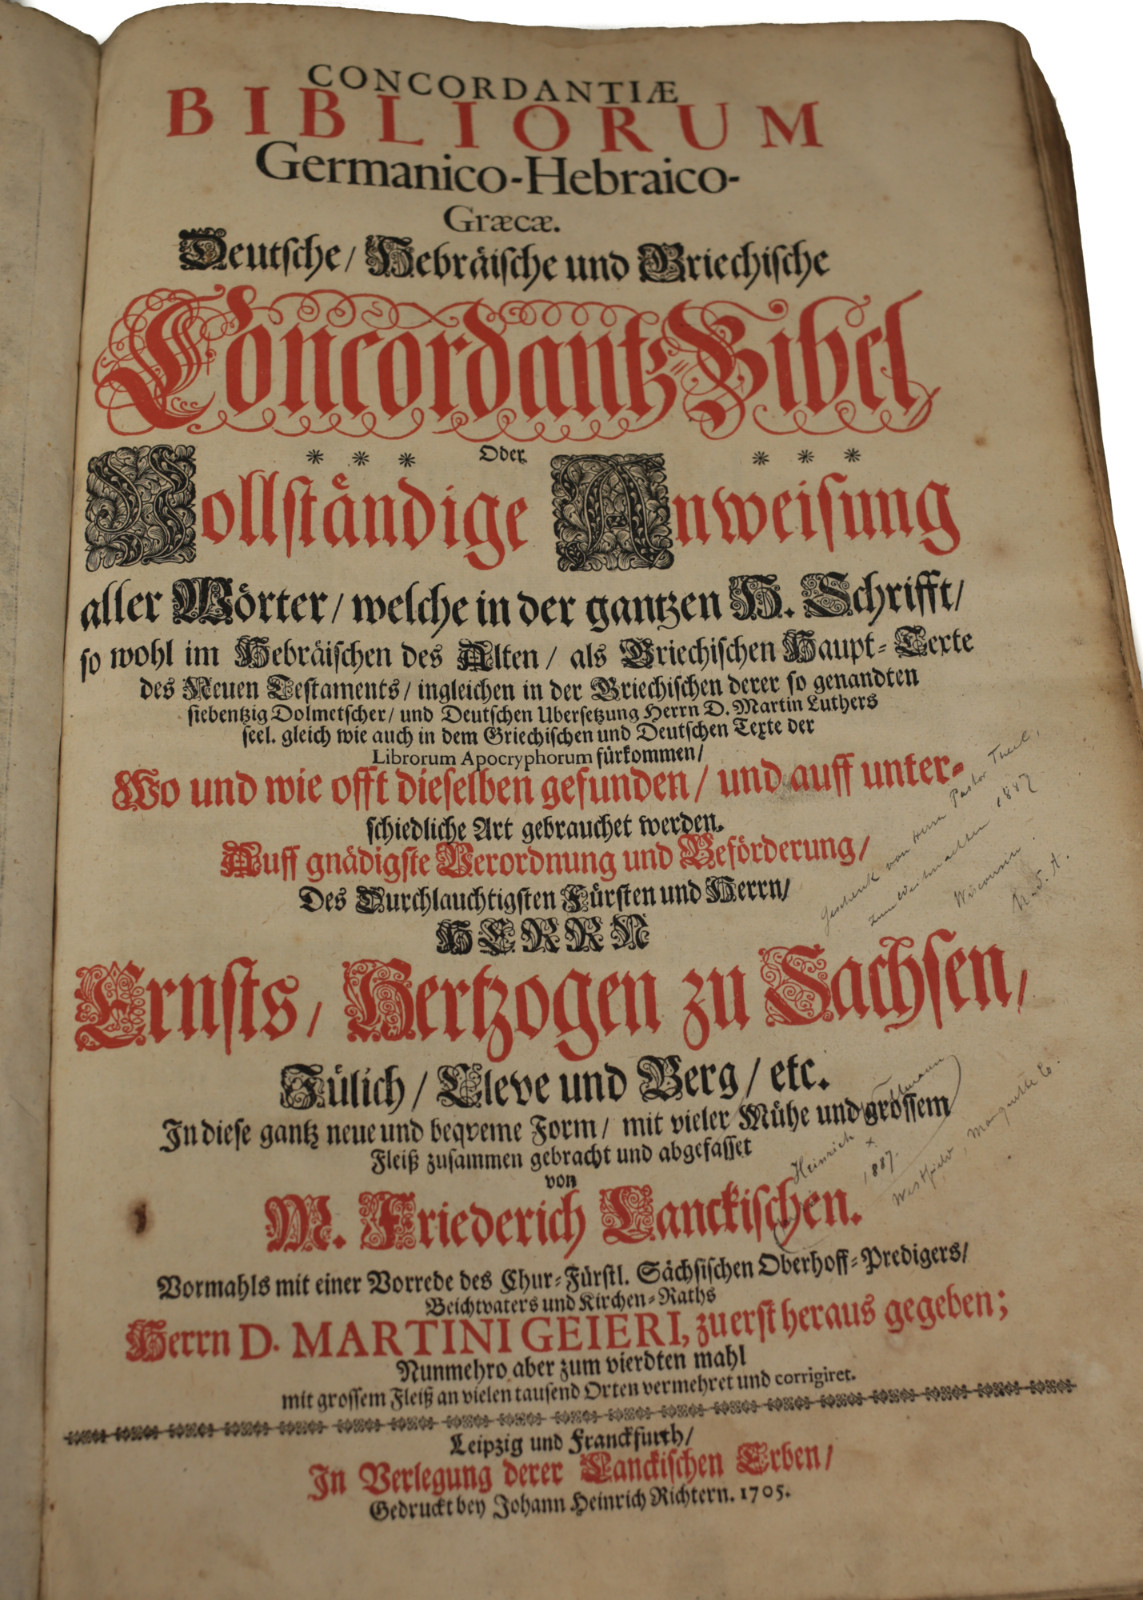 CONCORDANTIÆ
BIBLIORUM
Germanico-Hebraico-
Græcæ.
Deutsche/ Hebräische und Griechische
Concordantz-Bibel
* * * Oder * * *
Vollständige Anweisung
aller Wörter/ welche in der gantzen H. Schrifft/
so wohl im Hebräischen des Alten/ als Griechischen Haupt-Texte
des Neuen Testaments/ ingleichen in der Griechischen derer so genandten
siebentzig Dolmetscher/ und Deutschen Ubersetzung Herrn D. Martin Luthers
seel. gleich wie auch in dem Griechischen und Deutschen Texte der
Librorum Apocryphorum fürkommen/
Wo und wie offt dieselben gefunden/ und auff unter-
schiedliche Art gebrauchet werden.
Auff gnädigste Verordnung und Beförderung/
Des Durchlauchtigsten Fürsten und Herrn/
HERRN
Ernsts/ Hertzogen zu Sachsen/
Jülich/ Cleve und Berg/ etc.
In diese gantz neue und beqveme Form/ mit vieler Mühe und grossem
Fleiß zusammen gebracht und abgefasset
von
M. Friederich Lanckischen.
Vormahls mit einer Vorrede des Chur-Fürstl. Sächsischen Oberhoff-Predigers/
Beichtvaters und Kirchen-Raths
Herrn D. MARTINI GEIERI, zu erst heraus gegeben;
Nunmehro aber zum vierdten mahl
mit grossem Fleiß an vielen tausend Orten vermehret und corrigiret.
Leipzig und Franckfurth/
In Verlegung derer Lanckischen Erben/
Gedruckt bey Johann Heinrich Richtern. 1705.
Geschenk von Herrn Pastor
zum Weihnachten 1887
Wisconsin
N. d. A.
Heinrich
1887.
Westfield, Marquette C.